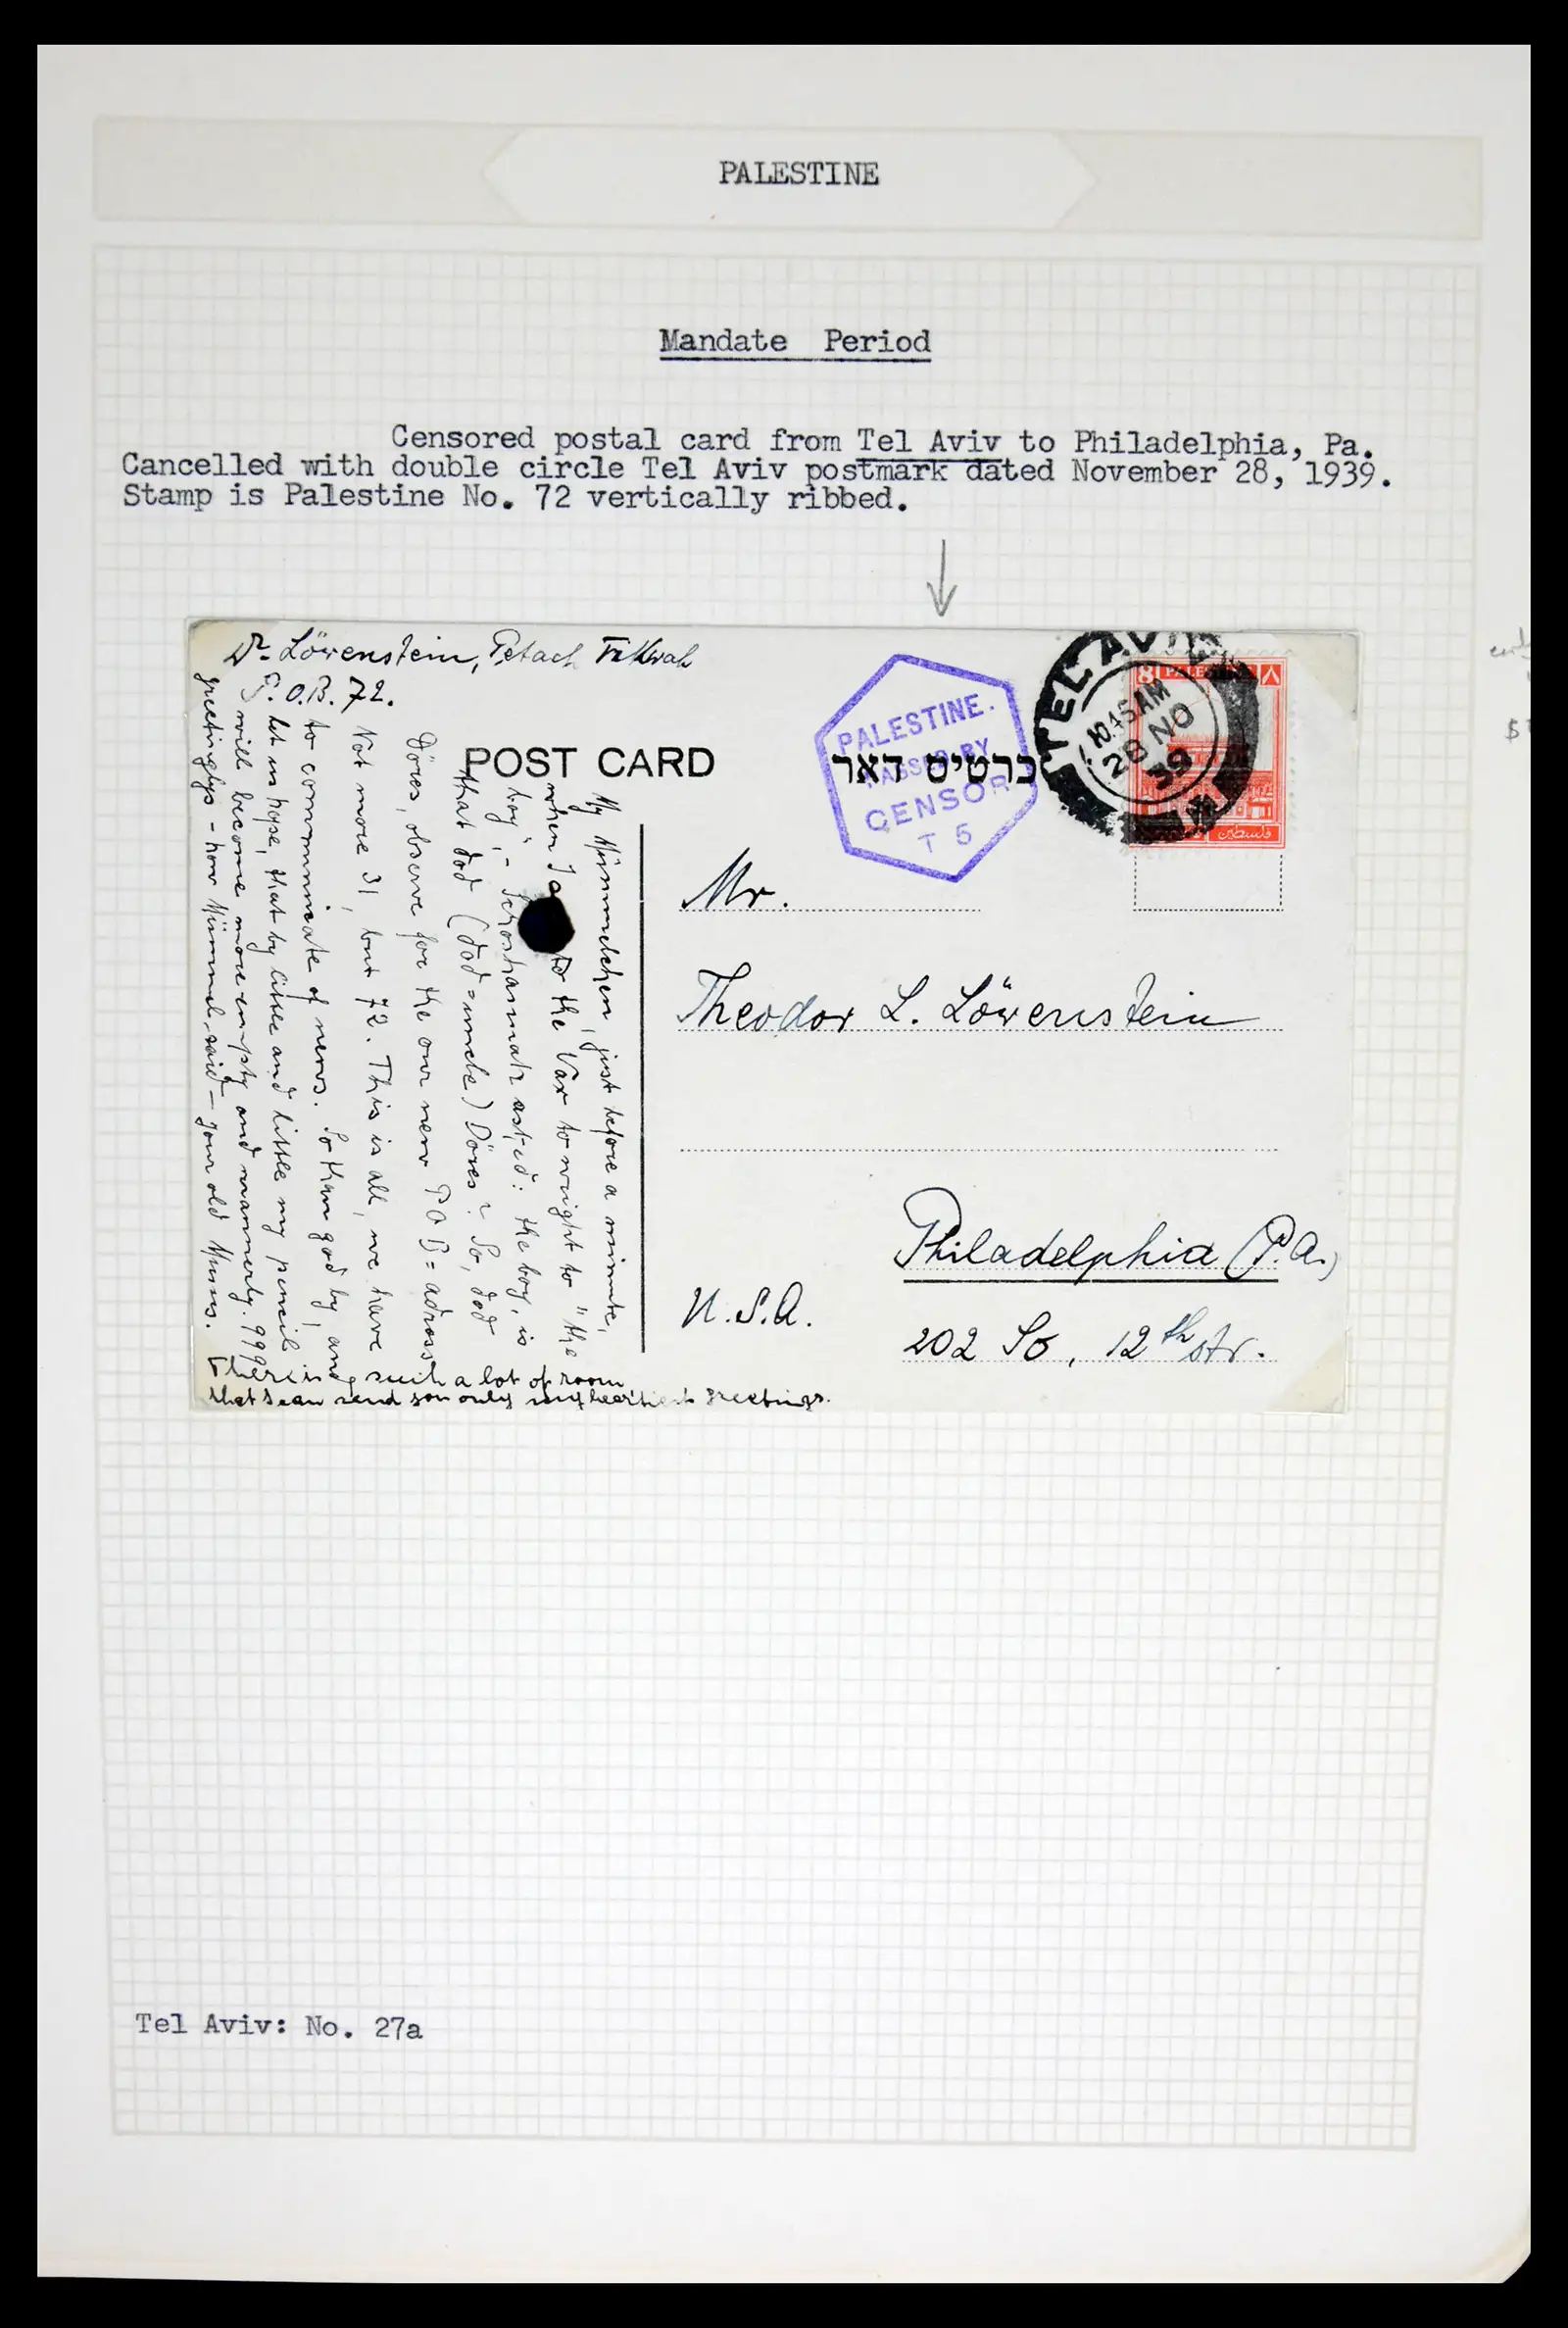 PALESTINE
Mandate Period
Censored postal card from Tel Aviv to Philadelphia, Pa.
Cancelled with double circle Tel Aviv postmark dated November 28, 1939.
Stamp is Palestine No. 72 vertically ribbed.
Dr. Löwenstein, Petach Tikwah
P.O.B. 72.
POST CARD
כרטיס דאר
PALESTINE.
PASSED BY
CENSOR
T 5
TEL AVIV
10.45 AM
28 NO
39
8 PALESTINE ٨
فلسطين
Mr.
Theodor L. Löwenstein
Philadelphia (P.A.)
U.S.A.
202 So, 12th str.
My Mümmelchen, just before a minute,
when I to the Vax to wright to "the
boy", - Schoshannah asked: the boy, is
that dod (dod = uncle) Dores? So, dod
Dores, observe for the our new POB = adress
Not more 31, but 72. This is all, we have
to communicate of news. So good by, and
let us hope, that by little and little my pencil
will become more empty and mannerly. 999
greetinglys - how Mümmel said - your old Mums.
There is such a lot of room
that I can send you only my heartiest greetings.
Tel Aviv: No. 27a